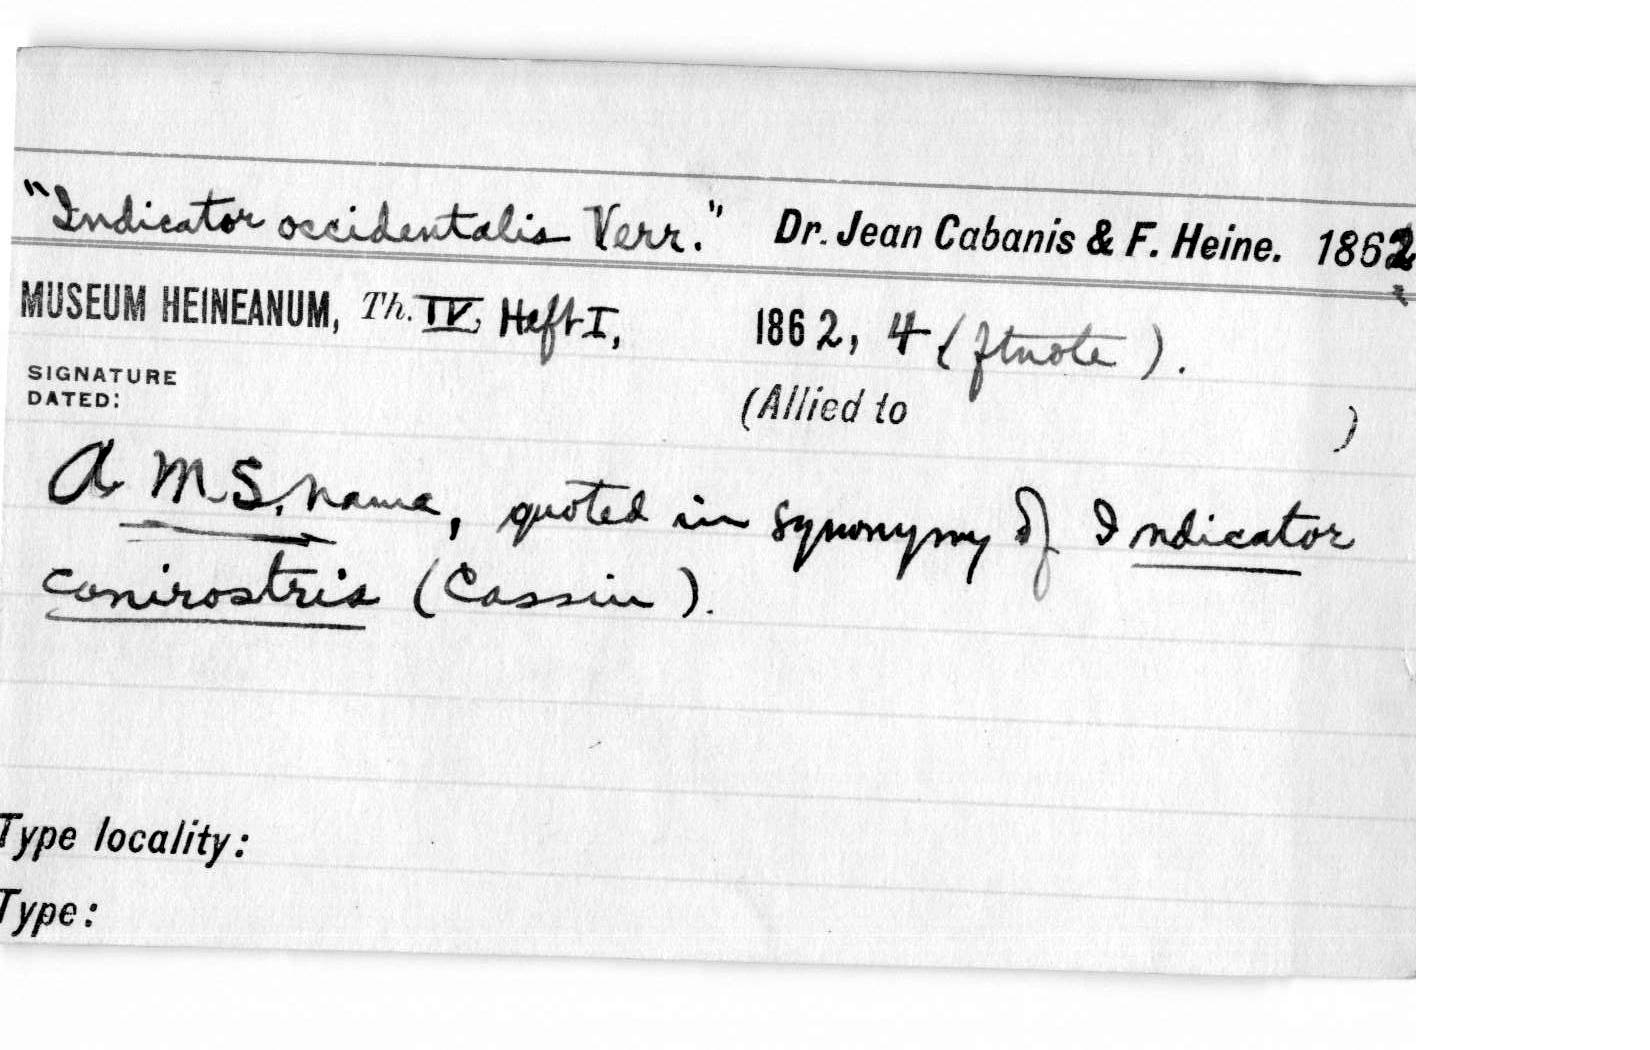 "Indicator occidentalis Verr." Dr. Jean Cabanis & F. Heine. 1862
MUSEUM HEINEANUM, Th. IV, Heft I, 1862, 4 (ftnote).
SIGNATURE
DATED:
(Allied to )
A MS. name, quoted in synonymy of Indicator
conirostris (Cassin).
Type locality:
Type: